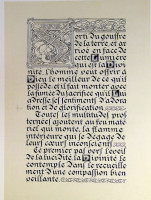 Sorti du gouffre
de la terre, et ar
rivé en face de
cette Lumière
qui est la Divi
nité, l'homme peut offrir à
Dieu le meilleur de ce qu'il
possède: et il fait monter avec
la fumée du sacrifice qu'il Lui
adresse les sentiments d'adora
tion et de glorification
Toute les multitudes prof
ternees s'attachent au feu maté
riel qui monte, la flamme
intérieure qui se dégage de
leurs cœurs inconscients
Ce premier pas vers l'éveil
de la lucidité, la Divinité le
contemple dans le recueille
ment d'une compassion bien
veillante.